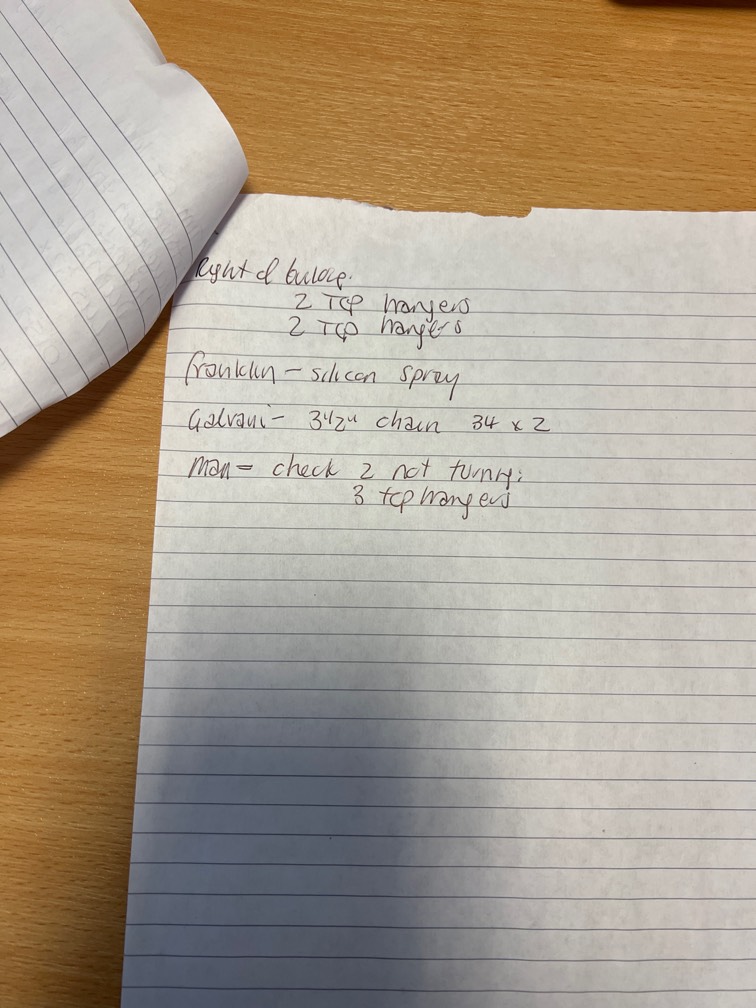 Right of
2 TCP hangers
2 TCP hangers
Franklin - silicon spray
Galvani - chain 34 x 2
man = check 2 not turning:
3 tcp hangers